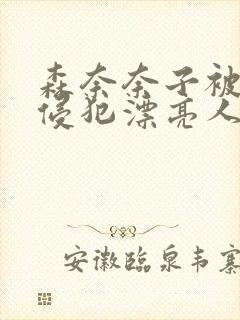 森奈奈子被
侵犯漂亮人
安徽临泉韦寨